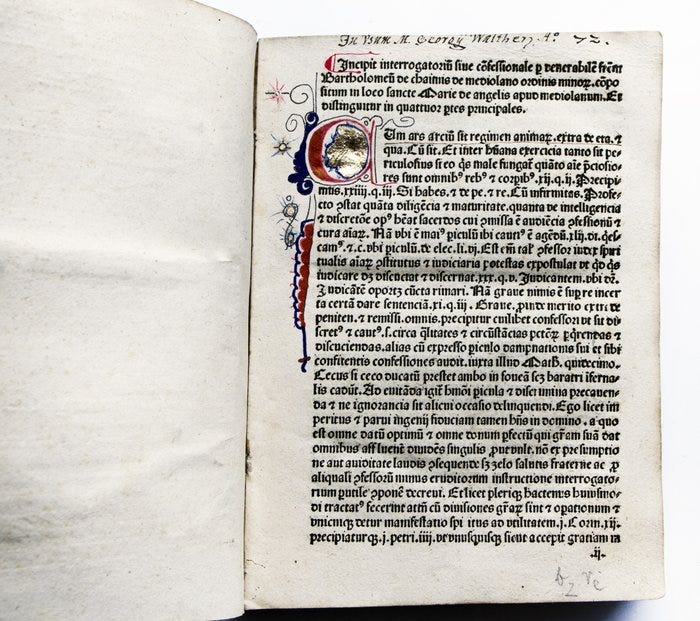 In Vsum M. Georgij Waltherj A° 72.
Incipit interrogatoriũ siue cõfessionale ꝑ venerabilẽ frẽm
Bartholomeũ de chaimis de mediolano ordinis minoꝝ. cõpo
situm in loco sancte Marie de angelis apud mediolanum. Et
distinguitur in quattuor ꝑtes principales.
CUm ars artiũ sit regimen animaꝝ. extra de eta. ⁊
qua. Cũ sit. Et inter hũana exercicia tanto sit pe-
riculosius si eo qͦs male fungat̃ quãto aĩe p̃ciosio-
res sunt omnibꝰ rebꝰ ⁊ corpibꝰ .xij.q.ij. Precipi
mus.xxiiij.q.iij. Si habes. ⁊ de pe. ⁊ re. Cũ infirmitas. Profe-
cto ꝯstat quãta diligẽcia ⁊ maturitate. quanta de intelligencia
⁊ discretõe opꝰ
cura aĩaꝝ. Nã vbi ẽ maiꝰ piculũ ibi cautiꝰ ẽ agẽdũ.
camꝰ. ⁊.c. vbi piculũ. de elec. li. vj. Est em̃ talꝭ ꝓfessor iudex spiri
tualis aĩaꝝ ꝯstitutus ⁊ iudiciaria potestas expostulat vt
iudicat ⁊ discernat.xxx.q.v. Judicantem. vbi dꝛ.
Judicãtẽ oportꝫ cũcta rimari. Nã graue nimis ẽ suꝑ re incer
ta certã dare sentenciã.xi.q.iij. Graue. ꝓinde merito extra de
peniten. ⁊ remissi. omnis. precipitur cuilibet confessori vt sit di
scretꝰ ⁊ cautꝰ.
discuciendas. alias cũ expresso piculo dampnationis sui et sibi
confitentis confessiones audit. iuxta illud Math. quidecimo.
Cecus si ceco ducatũ prestet ambo in foueã scꝫ baratri iferna-
lis cadũt. Ad euitãda igit̃ hmõi picula ⁊ discrimina precauen-
da ⁊ ne ignorancia sit alicui occasio delinquendi. Ego licet im
peritus ⁊ parui ingenij fiduciam tamen hñs in domino. a quo
est omne datũ optimũ ⁊ omne donum ꝑfectũ qui grãm suã dat
omnibus affluent̃ diuidẽs singulis ꝓut vult. nõ ex presumptio
ne aut auiditate laudis ꝯsequende sꝫ zelo salutis fraterne ac ꝓ
aliquali ꝯfessorũ minus eruditorum instructione interrogato-
rium putile ꝯponẽ decreui. Et licet pleriqꝫ hactenus huiusmo-
di tractatꝰ fecerint attñ cũ diuisiones grãꝝ sint ⁊ opationum ⁊
vnicuiqꝫ detur manifestatio spiritus ad vtilitatem. j. Corin. xij.
precipiaturqꝫ. j. petri. iiij. vt vnusquisqꝫ sicut accepit gratiam in
.ij.